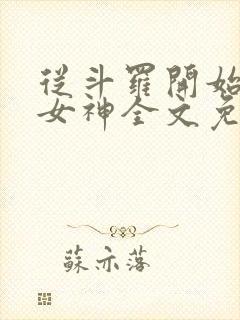 從斗羅開始
女神全文免
蘇亦落